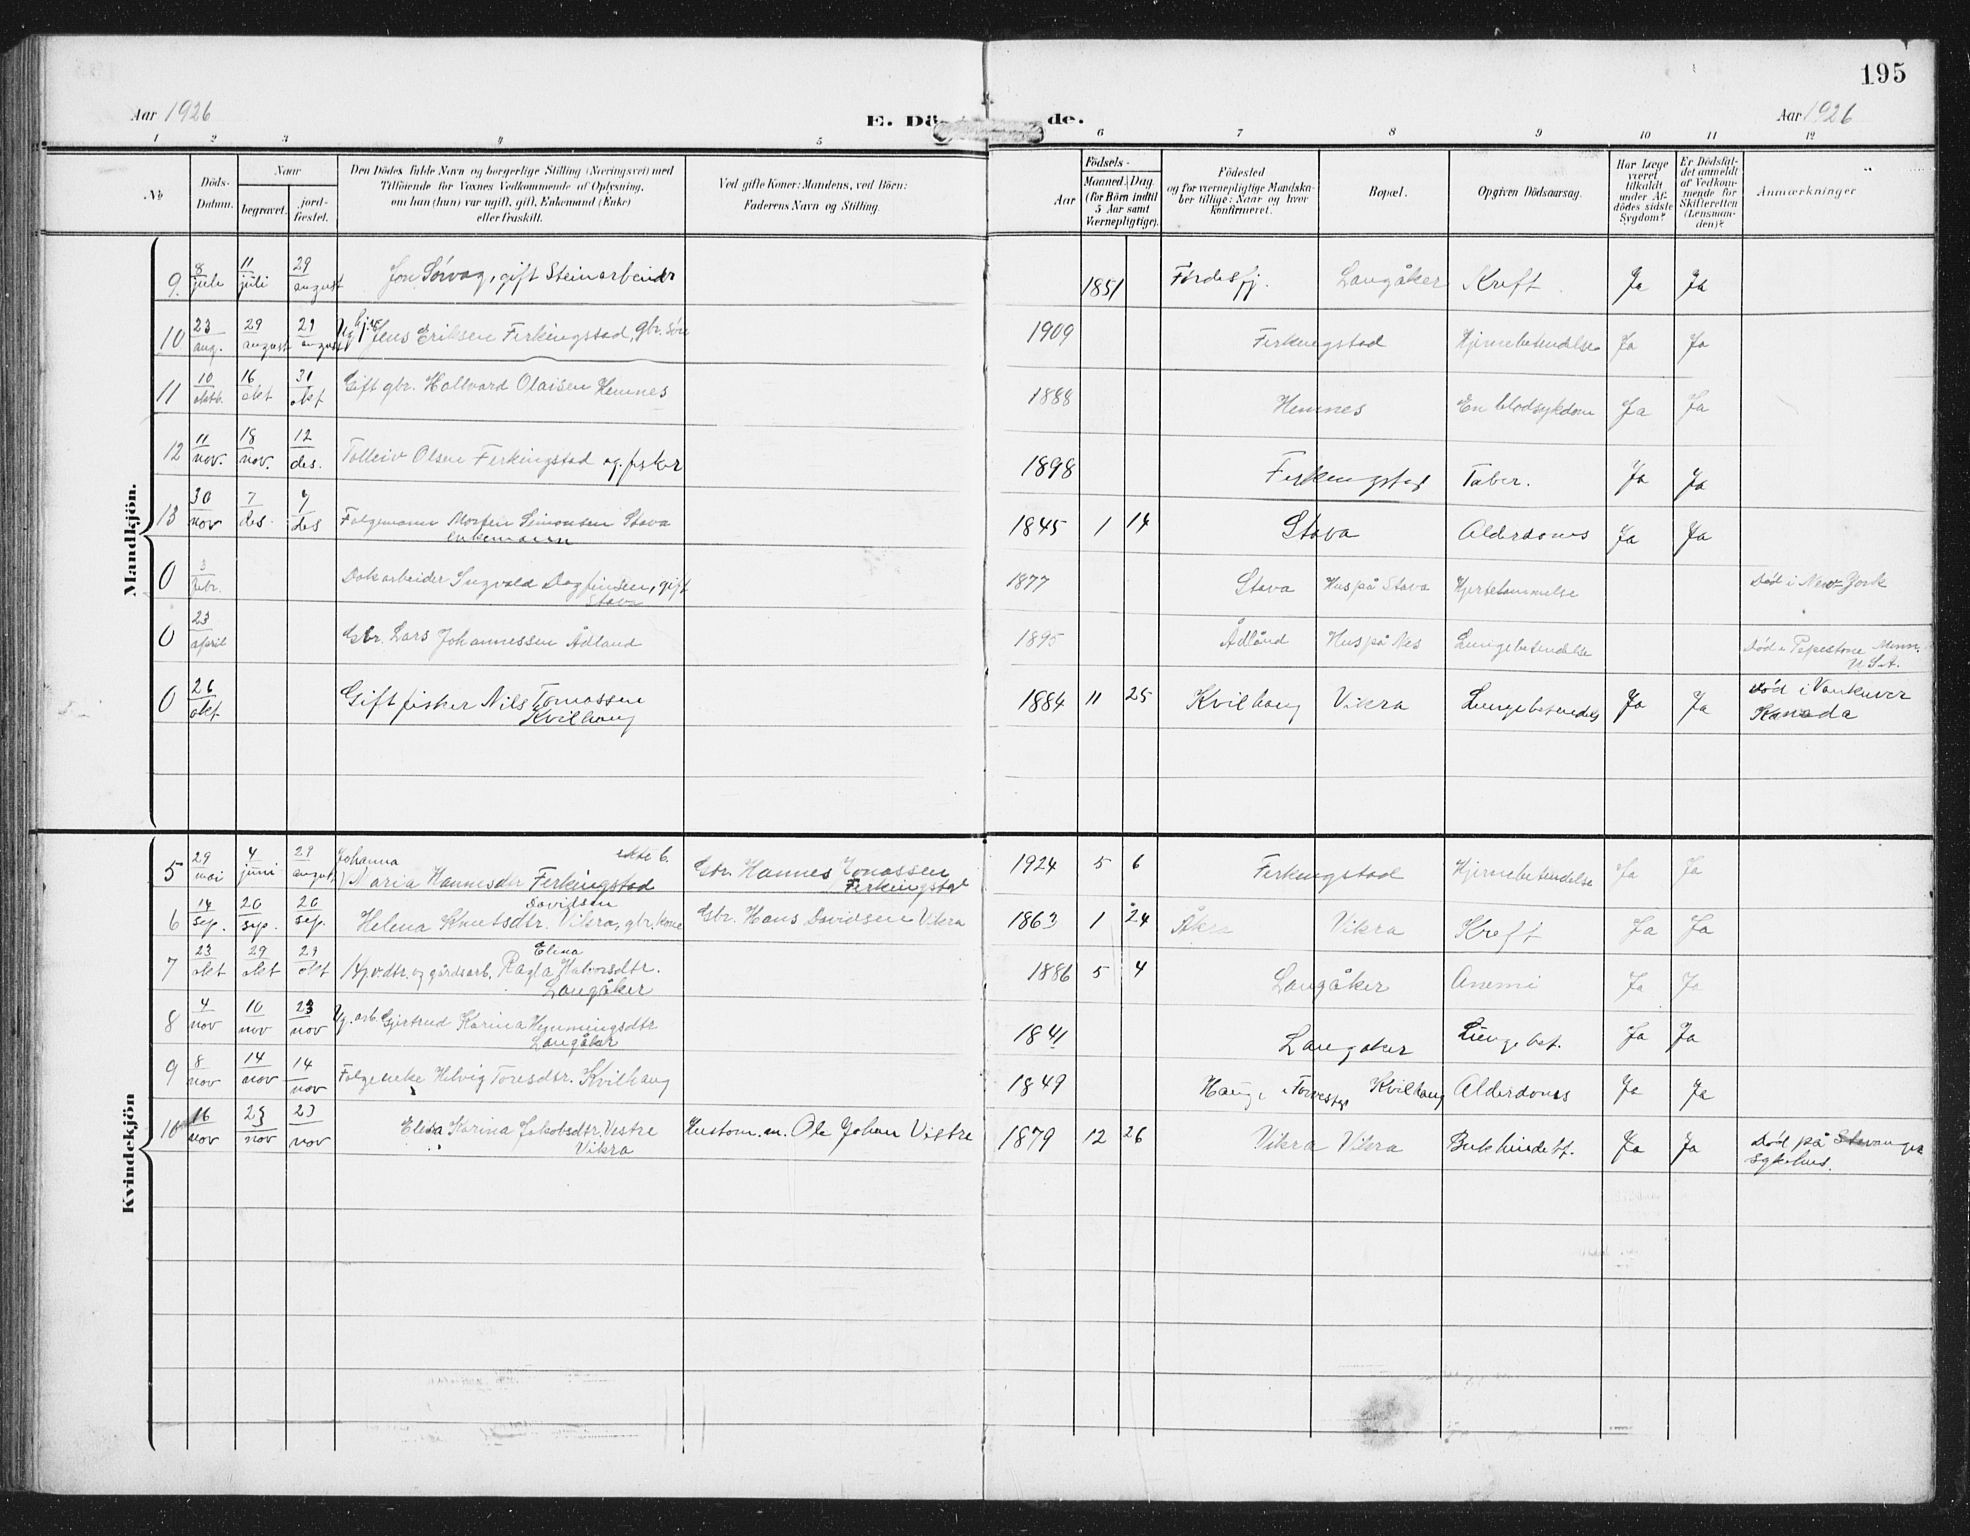 195
Aar 1926 E. Dö de. Aar 1926
1 2 3 4 5 6 7 8 9 10 11 12
No Döds-Datum. Naar begravet. jord-fæstet. Den Dödes fulde Navn og borgerlige Stilling (Næringsvei) med Tilföiende for Voxnes Vedkommende af Oplysning, om han (hun) var ugift, gift, Enkemand (Enke) eller fraskilt. Ved gifte Koner: Mandens, ved Börn: Faderens Navn og Stilling. Födsels- Aar Maaned. Dag (for Börn indtil 5 Aar samt Værnepligtige). Födested og for værnepligtige Mandskaber tillige: Naar og hvor konfirmeret. Bopæl. Opgiven Dödsaarsag. Har Læge været tilkaldt under Afdödes sidste Sygdom? Er Dödsfaldet anmeldt af Vedkommende for Skifteretten (Lensmanden)? Anmærkninger
Mandkjön.
9. 8 juli 11 juli 29 august Jon Sörvag, gift Steinarbeider 1851 Fördesfj. Langåker Kreft Ja Ja
10 23 aug. 29 august 29 august Jens Eriksen Ferkingstad, gbr. sön 1909 Ferkingstad Hjernebetendelse Ja Ja
11 10 oktb. 16 okt 31 okt Gift gbr. Hallvard Olaisen Hemnes 1888 Hemnes En blodsykdom Ja Ja
12 11 nov. 18 nov. 12 des. Tolleiv Olsen Ferkingstad og. fisker 1898 Ferkingstad Tuber. Ja Ja
13 30 nov 7 des. 7 des Folgemann Morten Simonsen Stava 1845 1 14 Stava Alderdoms Ja Ja
enkemann
0 3 febr. Dokarbeider Ingvald Dagfinsen, gift 1877 Stava Hus på Stava Hjertelammelse död i New-York
Stava
0 23 april Gbr. Lars Johannessen Ådland 1895 Ådland Hus på Nes Lungebetendelse död i Pepestone Minn.
U.S.A.
0 26 okt Gift fisker Nils Tomassen 1884 11 25 Kvilhaug Vikra Lungebetendels Ja Ja död i Vankuver
Kvilhaug Kanada
Kvindekjön
Johanna ekte b.
5 29 mai 4 juni 29 august Maria Hannesdtr Ferkingstad Gbr. Hannes Jonassen 1924 5 6 Ferkingstad Hjernebetendelse Ja Ja
Ferkingstad
Davidsen
6 14 sep. 20 sep. 20 sep. Helena Knutsdtr. Vikra, gbr. kone Gbr. Hans Davidsen Vikra 1863 1 24 Åkra Vikra Kreft Ja Ja
Elena
7 23 okt 29 okt 29 okt og gårdsarb. Ragla Halvorsdtr. 1886 5 4 Langåker Anemi Ja Ja
Langåker
8 4 nov 10 nov 23 nov Ug. arb. Gjertrud Karina Hemmingsdtr 1841 Langåker Lungebet. Ja Ja
Langåker
9 8 nov 14 nov 14 nov Folgeenke Helvig Toresdtr. Kvilhaug 1849 Hauge i Torvestad Kvilhaug Alderdoms Ja Ja
10 16 nov 23 nov 23 nov Elena Karina Jakobsdtr. Vestre Hustom. m. Ole Johan Vestre 1879 12 26 Vikra Vikra Bukhindebt. Ja Ja död på Stavanger
Vikra sykehus.